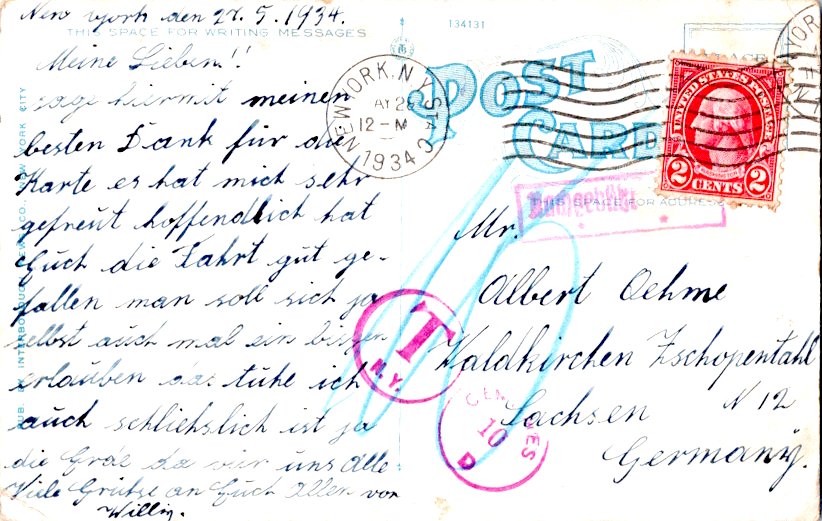 New York den 27.5.1934.
THIS SPACE FOR WRITING MESSAGES
Meine Lieben!!
sage hiermit meinen
besten Dank für die
Karte es hat mich sehr
gefreut hoffendlich hat
Euch die Fahrt gut ge-
fallen man soll sich ja
selbst auch mal ein bizgen
erlauben das tuhe ich
auch schliehslich ist ja
die Erde da vür uns Alle
Viele Grütze an Euch Allen von
Willy.
134131
POST CARD
NEW YORK, N.Y. STA. C
MAY 28
12-M
1934
UNITED STATES POSTAGE
2 CENTS 2
Nachgebühr
THIS SPACE FOR ADDRESS
Mr.
Albert Oehme
Waldkirchen Zschopentahl
Sachsen N 12
Germany.
T
N.Y.
CENTIMES
10
PUB. BY INTERBOROUGH NEWS CO., NEW YORK CITY